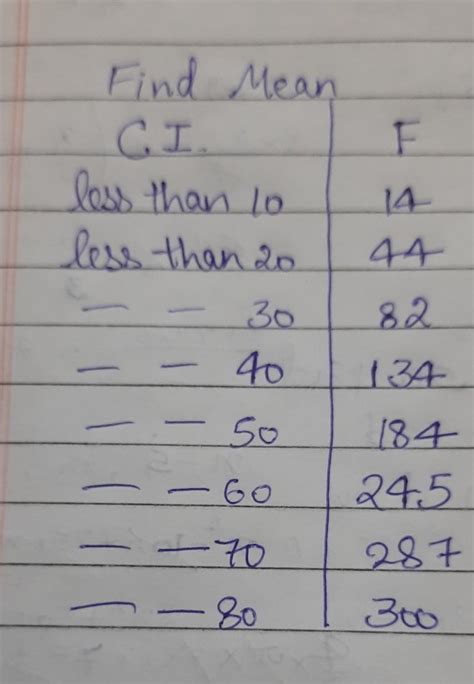 Find Mean
C.I. F
less than 10 14
less than 20 44
— — 30 82
— — 40 134
— — 50 184
— — 60 245
— — 70 287
— — 80 300